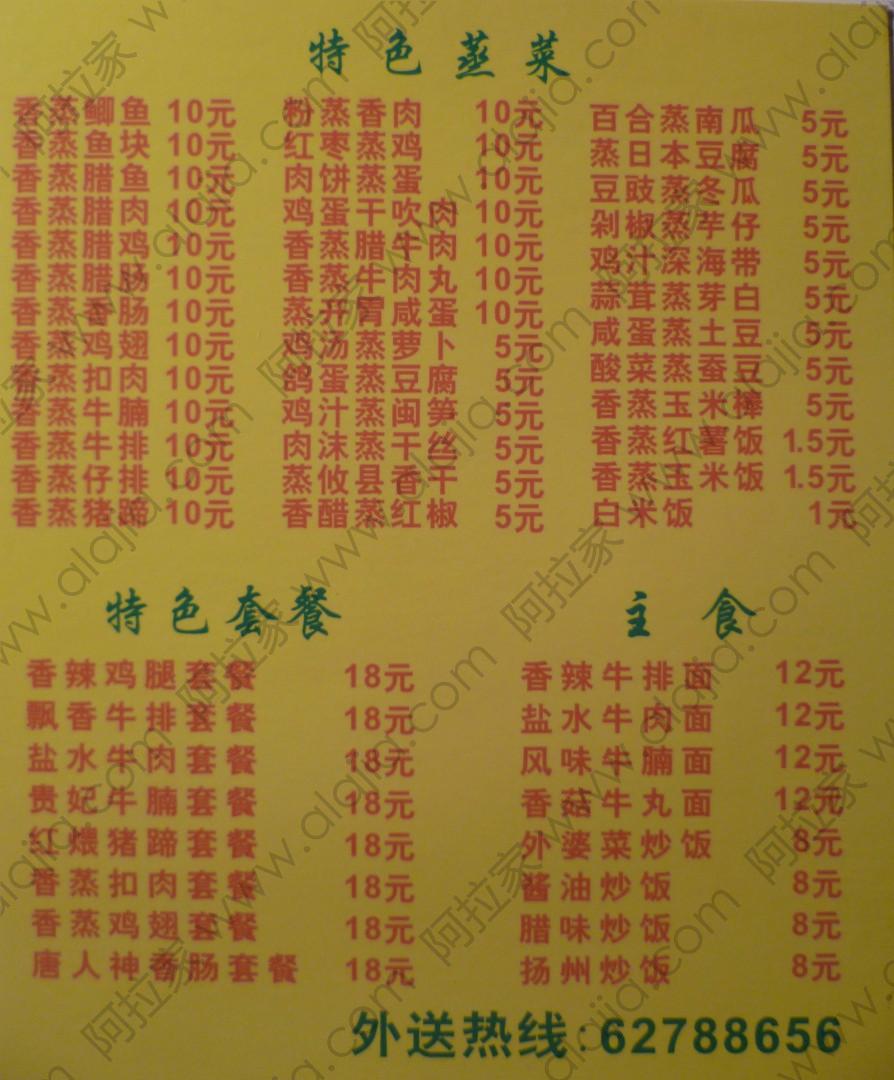 特色蒸菜
香蒸鲫鱼 10元
香蒸鱼块 10元
香蒸腊鱼 10元
香蒸腊肉 10元
香蒸腊鸡 10元
香蒸腊肠 10元
香蒸香肠 10元
香蒸鸡翅 10元
香蒸扣肉 10元
香蒸牛腩 10元
香蒸牛排 10元
香蒸仔排 10元
香蒸猪蹄 10元
粉蒸香肉 10元
红枣蒸鸡 10元
肉饼蒸蛋 10元
鸡蛋干吹肉 10元
香蒸腊牛肉 10元
香蒸牛肉丸 10元
蒸开胃咸蛋 10元
鸡汤蒸萝卜 5元
鸽蛋蒸豆腐 5元
鸡汁蒸闽笋 5元
肉沫蒸干丝 5元
蒸攸县香干 5元
香醋蒸红椒 5元
百合蒸南瓜 5元
蒸日本豆腐 5元
豆豉蒸冬瓜 5元
剁椒蒸芋仔 5元
鸡汁深海带 5元
蒜茸蒸芽白 5元
咸蛋蒸土豆 5元
酸菜蒸蚕豆 5元
香蒸玉米搼 5元
香蒸红薯饭 1.5元
香蒸玉米饭 1.5元
白米饭 1元
特色套餐
香辣鸡腿套餐 18元
飘香牛排套餐 18元
盐水牛肉套餐 18元
贵妃牛腩套餐 18元
红煨猪蹄套餐 18元
香蒸扣肉套餐 18元
香蒸鸡翅套餐 18元
唐人神香肠套餐 18元
主食
香辣牛排面 12元
盐水牛肉面 12元
风味牛腩面 12元
香菇牛丸面 12元
外婆菜炒饭 8元
酱油炒饭 8元
腊味炒饭 8元
扬州炒饭 8元
外送热线:62788656
阿拉家 www.alajia.com